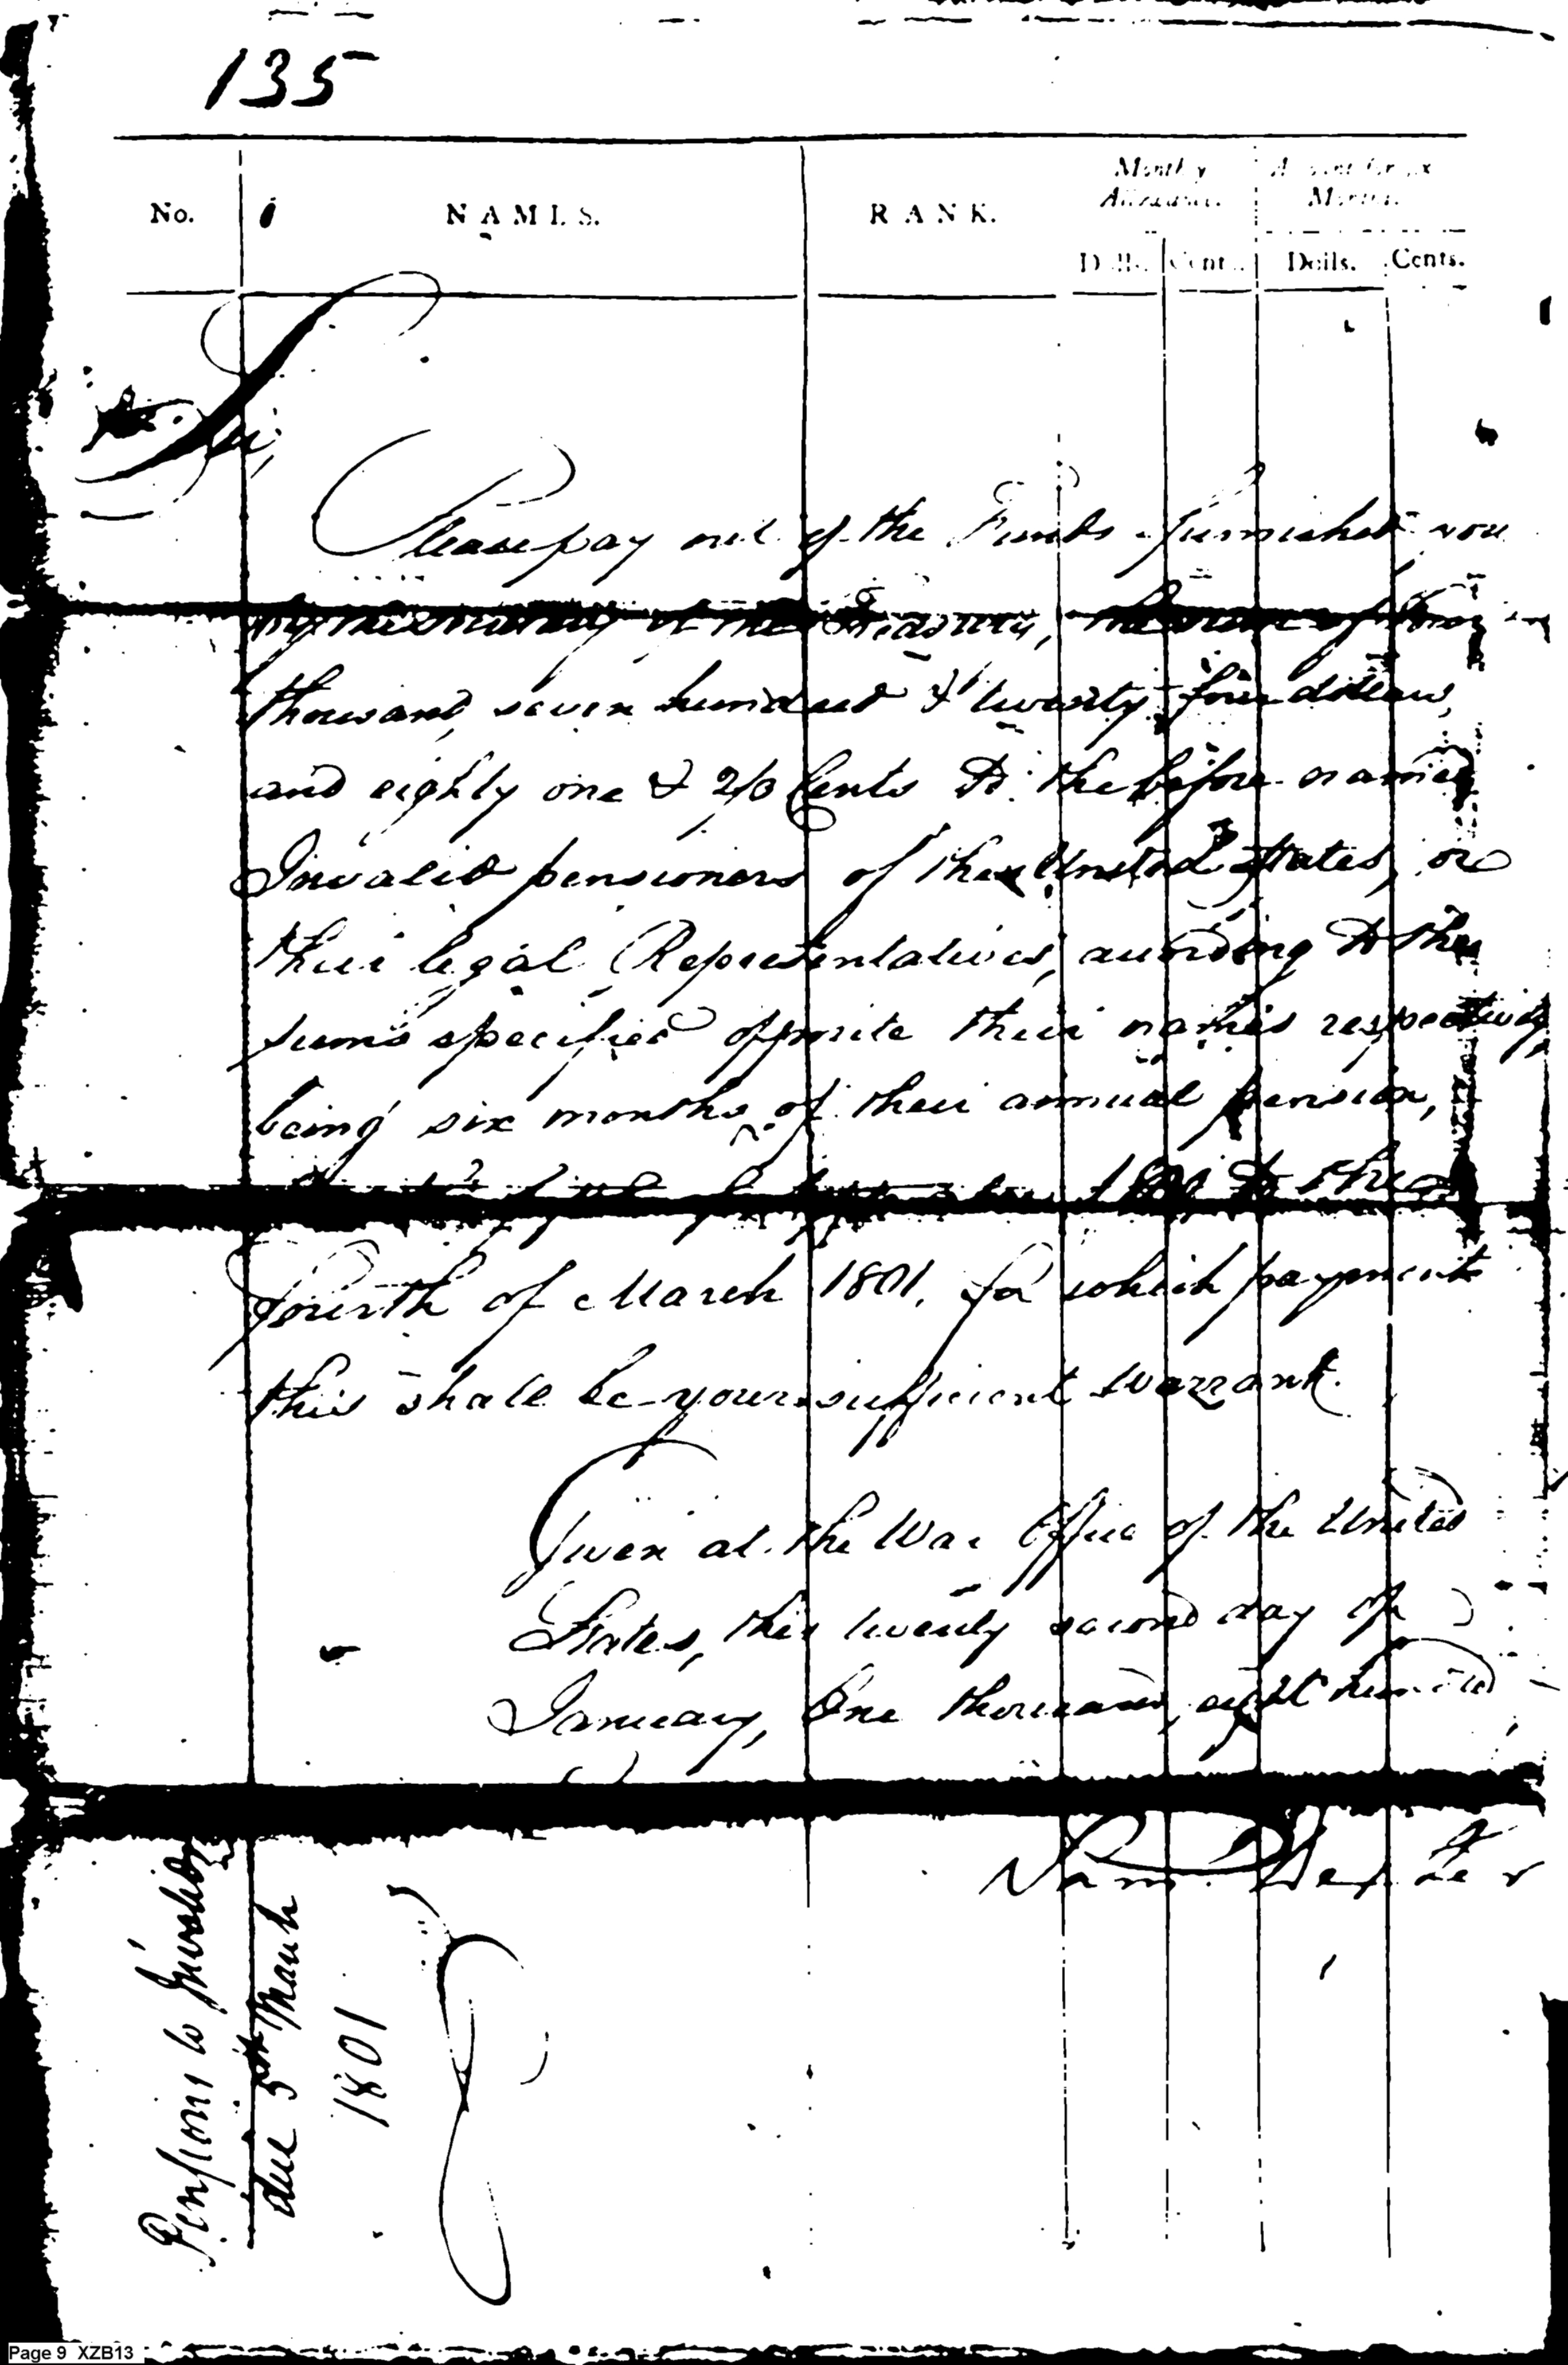 135
No. NAMES. RANK. Monthly Allowance. Amount for six Months.
Dolls. Cents. Dolls. Cents.
Sir,
Please pay out of the Funds furnished you
by the Treasury, the sum of
thousand, seven hundred & twenty four dollars,
and eighty one & 2/6 Cents to the before named
Invalid pensioners of the United States, or
their legal Representatives, according to the
sums specified opposite their names respectively
being six months of their annual pension,
to the
fourth of March 1801, for which payment
this shall be your sufficient warrant.
Given at the War Office of the United
States, this twenty second day of
January, One thousand, eight hundred
Sam. Dexter
Pensions to Invalids
due 5th March
1801
Page 9 XZB13